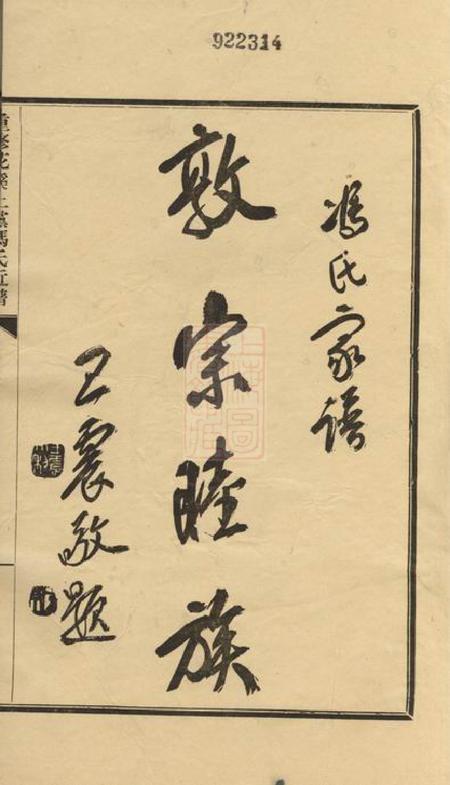 922314
馮氏家譜
敦宗睦族
王震敬題